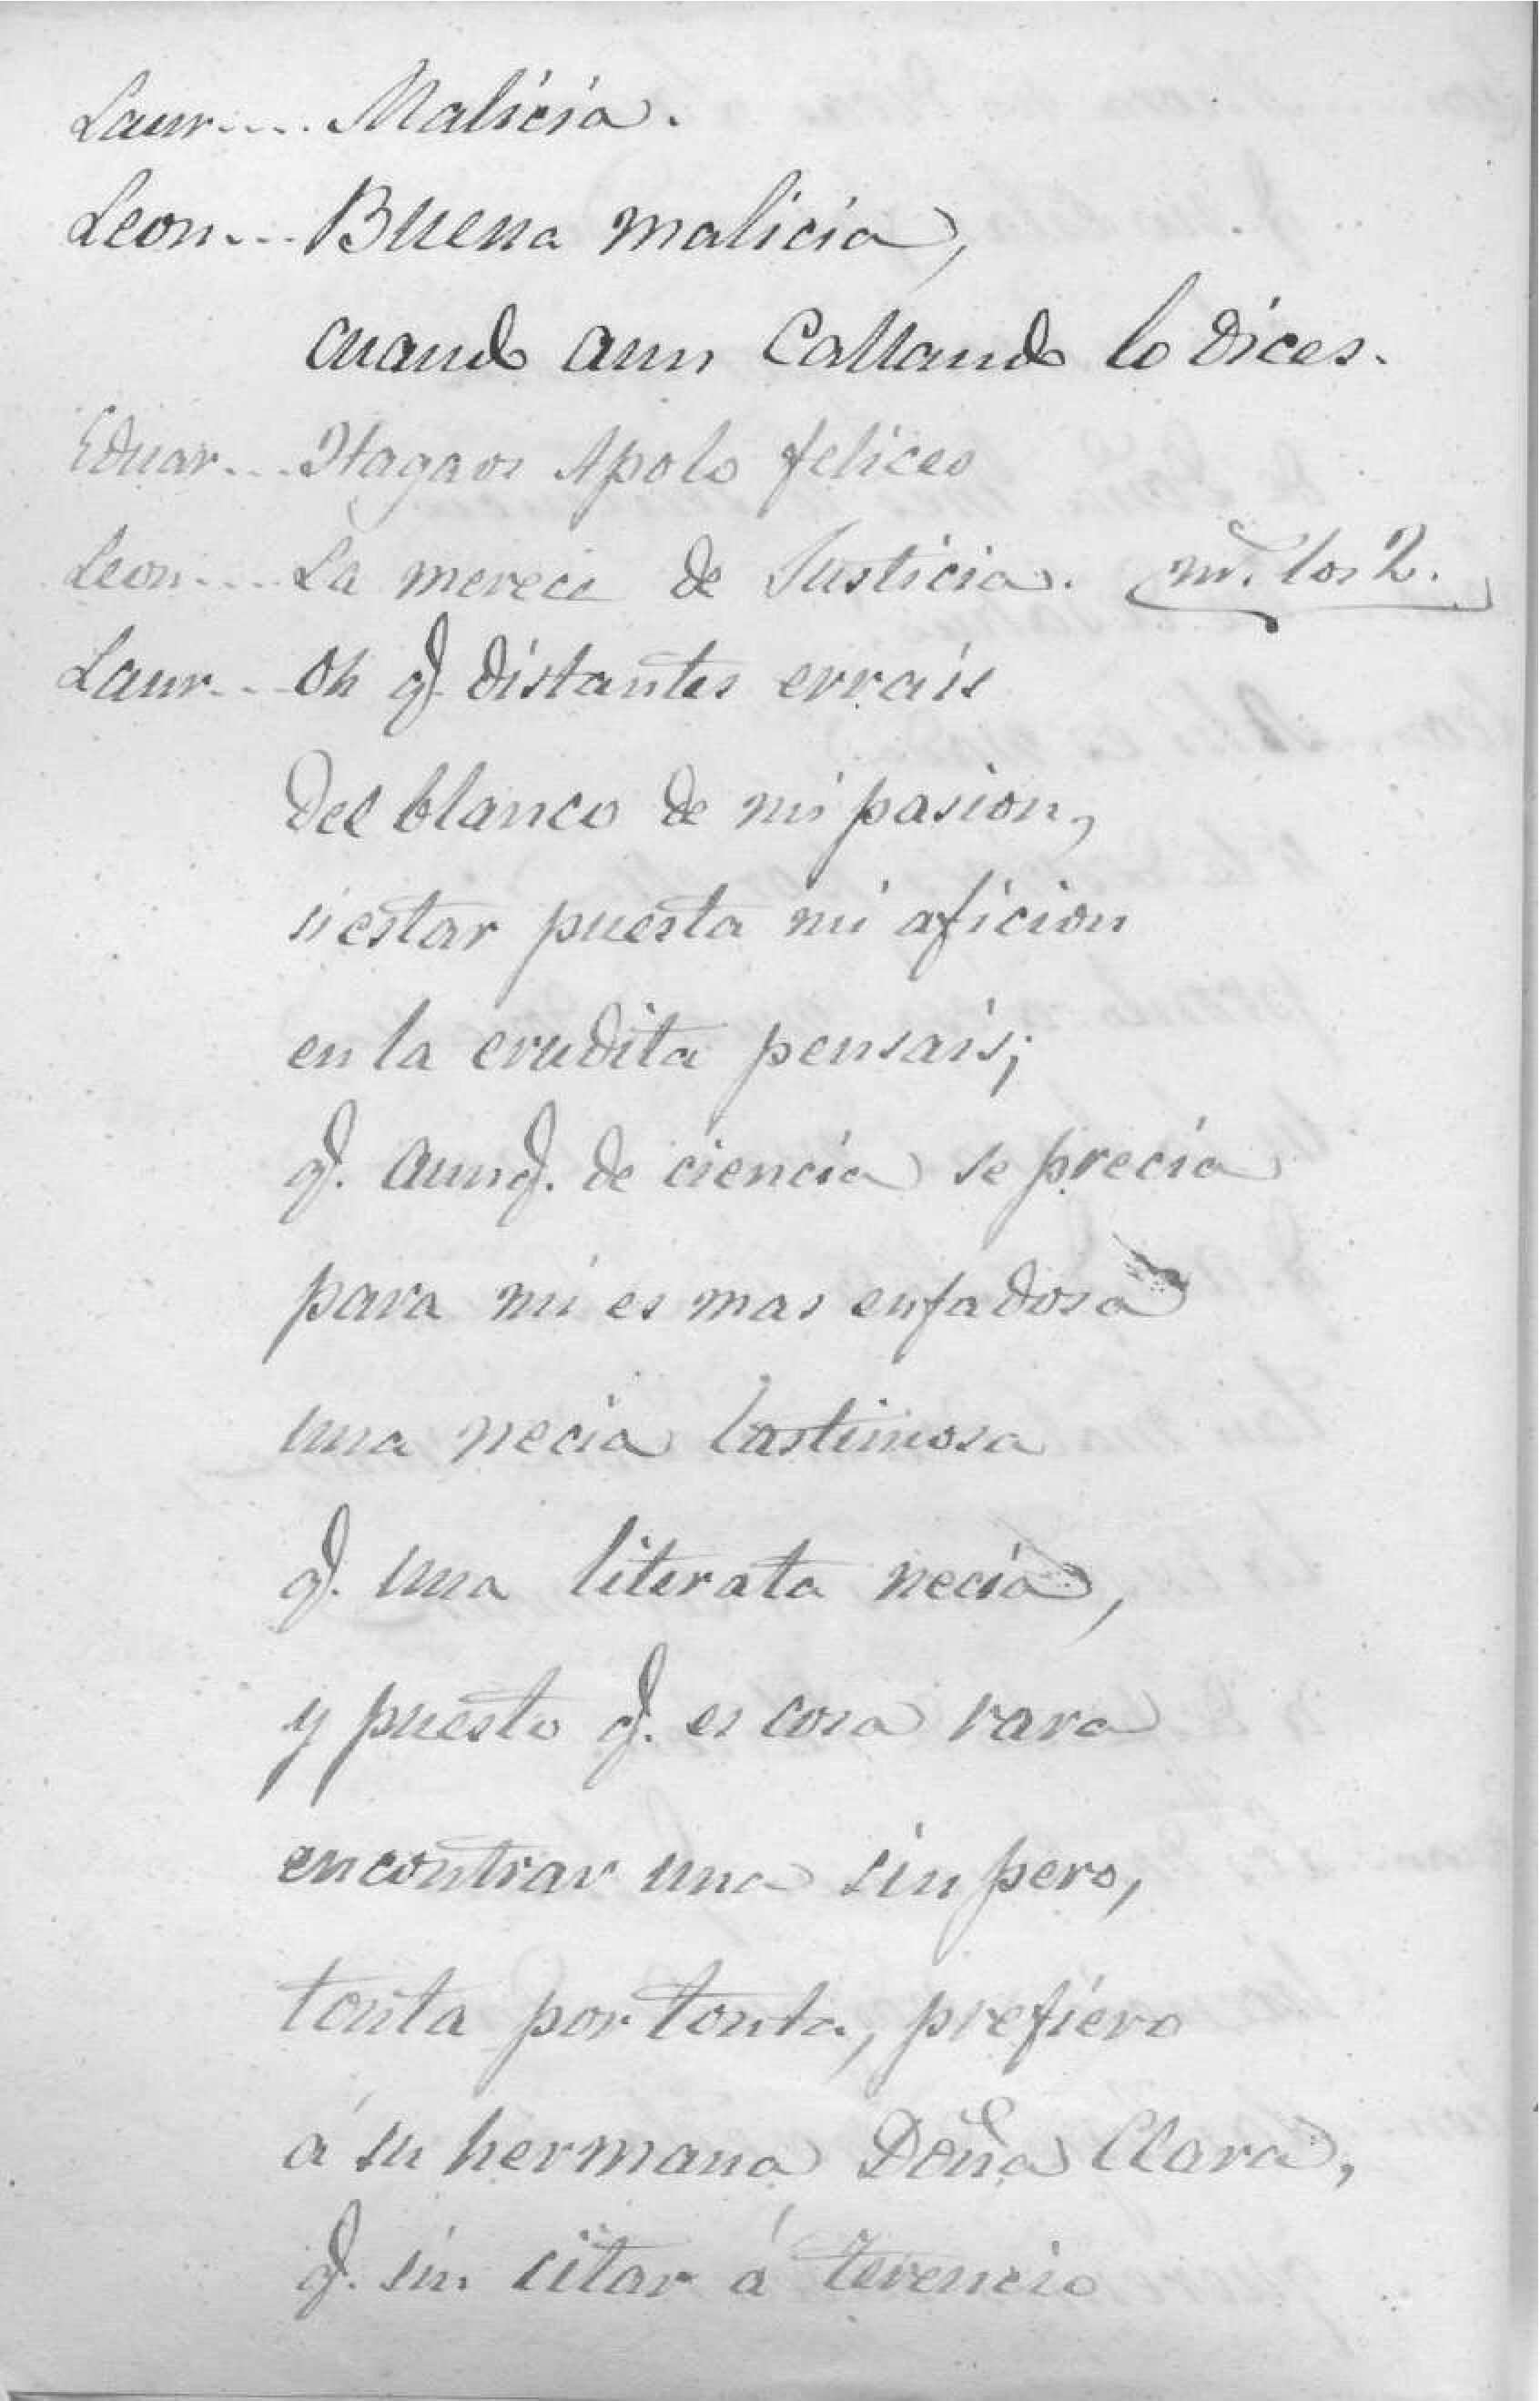 Laur.... Malicia.
Leon... Buena malicia,
cuando aun Callando lo dices.
Eduar... Hagaos Apolo felices
Leon.... La merece de Justicia. los 2.
Laur... Oh q.e distantes errais
Del blanco de mi pasion,
si estar puesta mi aficion
en la erudita pensais;
q. aunq. de ciencia se precia
para mi es mas enfadosa
una necia lastimosa
q. una literata necia,
y puesto q. es cosa rara
encontrar una sin pero,
tonta por tonta, prefiero
á su hermana Doña Clara,
q. sin citar á terencio